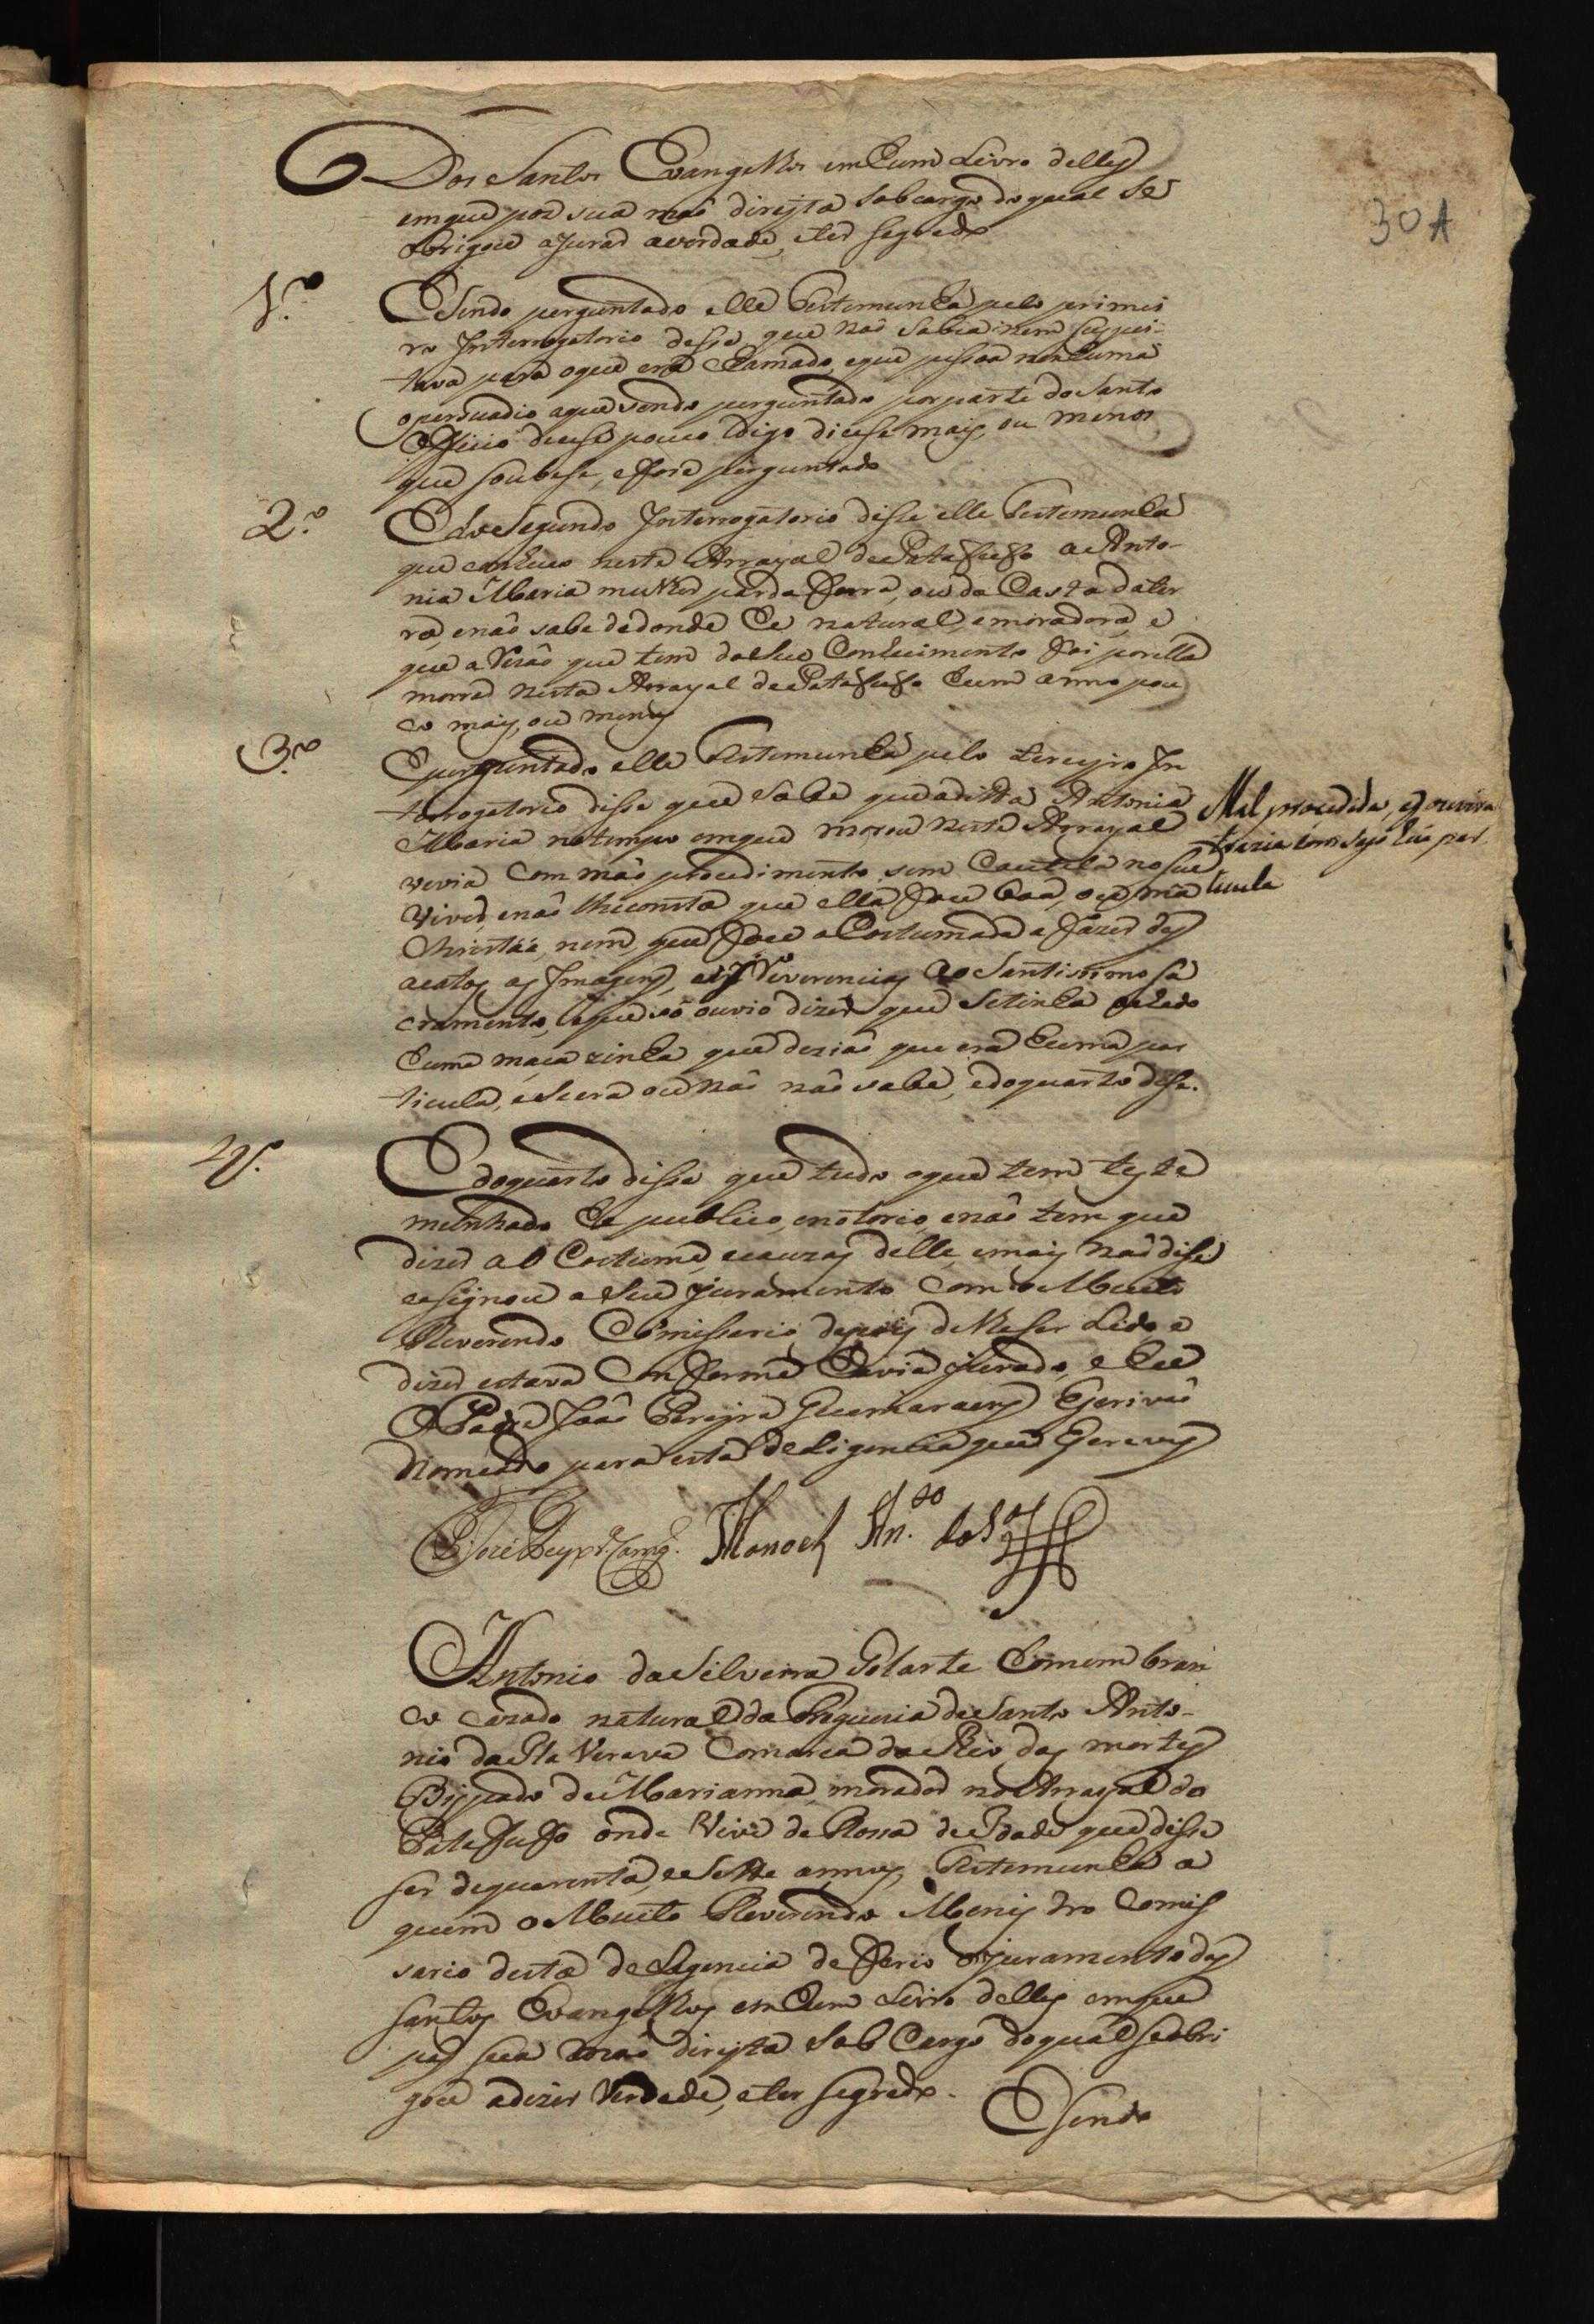 30A
Dos Santos Evangelhos em hum Livro delles
em que pos sua mão direyta sob cargo do qual se
obrigou a jurar a verdade, e ter segredo
1.º
E Sendo perguntado elle Testemunha pelo primei
ro Interrogatorio disse que não sabia nem suspei-
tava para o que era chamado, e que pessoa nenhuma
o persuadio a que sendo perguntado por parte do Santo
Officio dicese pouco digo dicese mais, ou menos
que soubese, e fose perguntado
2.º
E do Segundo Interrogatorio disse elle Testemunha
que conheceo neste Arrayal de Patafufo a Anto-
nia Maria mulher parda forra, ou da Casta da ter
ra, e não sabe dedonde he natural, e moradora, e
que a Rezão que tem do seu Conhecimento foi por ella
morar neste Arrayal de Patafufo hum anno pou
co mais, ou menos
3.º
E perguntado elle Testemunha pelo terceyro In
terrogatorio disse que sabe que a ditta Antonia
Maria no tempo em que morou neste Arrayal
vevia com máo procedimento sem Cautela no seu
viver, e não lhe consta que ella fose boa, ou má
Christãa, nem, que fose a Costumada a fazer des
acatos as Imagens, e irreverencias ao Santissimo Sa
cramento, e que só ouvio dizer que se tinha achado
huma maça zinha que dezião que era huma par
ticula, e se era ou não não sabe, e do quarto disse.
Mal procedida, e q ouvira
trazia comsigo hũa par
ticula
4.º
E do quarto disse que tudo o que tem teste
munhado he publico, e notorio, e não tem que
dizer ao Costume, e couzas delle, e mais não disse
e asignou a seu juramento com o Muito
Reverendo Comissario, depois de lhe ser Lido, e
dizer estava Conforme havia jurado, e Eu
O Padre João Pereyra Guimaraens Escrivão
Nomeado para esta deligencia que Escrevy
Manoel An.to dos
Antonio da Silveira Golarte homem bran
co cazado natural da Freguezia de Santo Anto-
nio da Ita Verava Comarca do Rio das mortes
Bispado de Marianna, morador no Arrayal do
Patafufo onde Vive de Rossa de Idade que disse
ser de quarenta, e sette annos, Testemunha a
quem o Muito Reverendo Menistro Comis
sario desta deligencia deferio o juramento dos
Santos Evangelhos em hum Livro delles em que
pos sua mão direyta sob Cargo do qual se obri
gou a dizer Verdade, e ter segredo.
E sendo